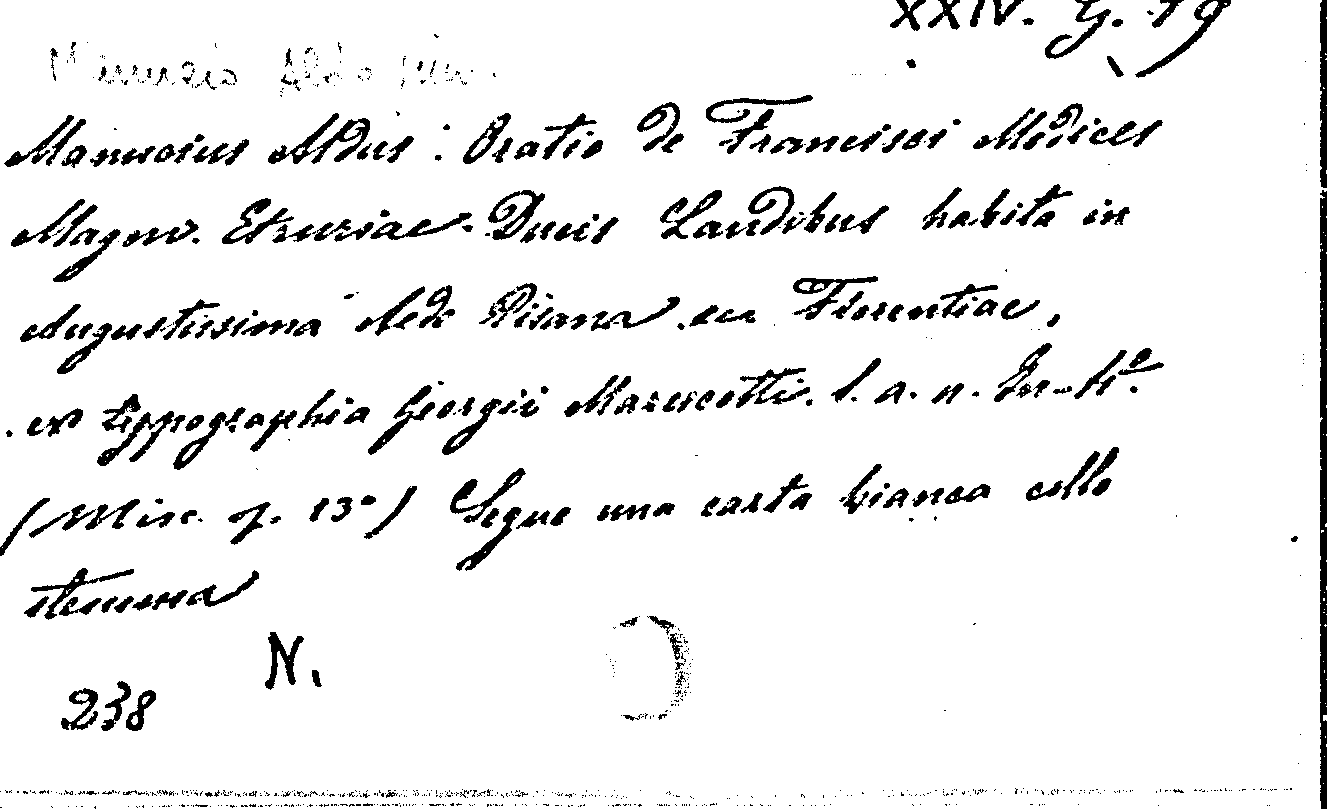 XXIV. G. 19
Manuzio Aldo jun.
Manucius Aldus: Oratio de Francisci Medices
Magni. Etruriae Ducis Laudibus habita in
Augustissima Aede Pisana Florentiae,
ex typographia Georgii Marescotti. s. a. n. In-4º.
(Misc. op. 13º) Segue una carta bianca collo
stemma
N.
238